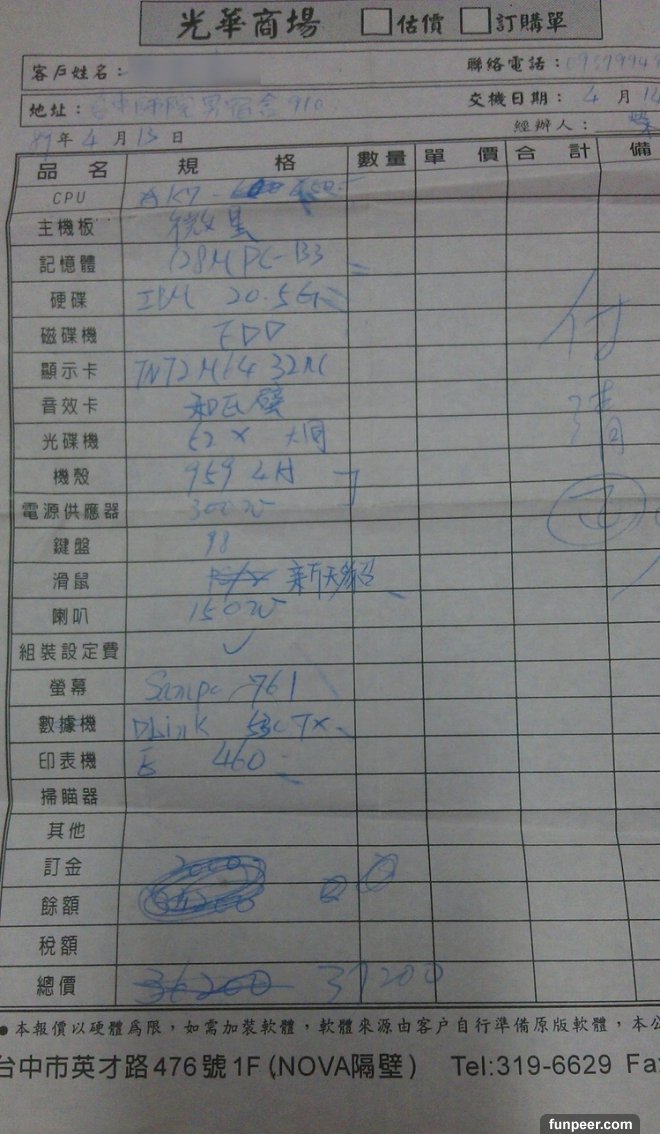 光華商場 □估價 □訂購單
客戶姓名：
聯絡電話：
地址： 910
交機日期： 4 月 14
89 年 4 月 13 日
經辦人：
品名 規格 數量 單價 合計 備
CPU K7-
主機板 微星
記憶體 128M PC-133
硬碟 IBM 20.5G
磁碟機 FDD
顯示卡 TNT2 M64 32M
音效卡
光碟機 52X 大同
機殼 959 4A
電源供應器 300W
鍵盤 98
滑鼠
喇叭 150W
組裝設定費 ✓
螢幕 Sampo 761
數據機 DLink 530TX
印表機 E 460
掃瞄器
其他
訂金
餘額
稅額
總價 36200 37200
付
清
●本報價以硬體為限，如需加裝軟體，軟體來源由客戶自行準備原版軟體，本公
台中市英才路476號1F(NOVA隔壁) Tel:319-6629 Fa
funpeer.com